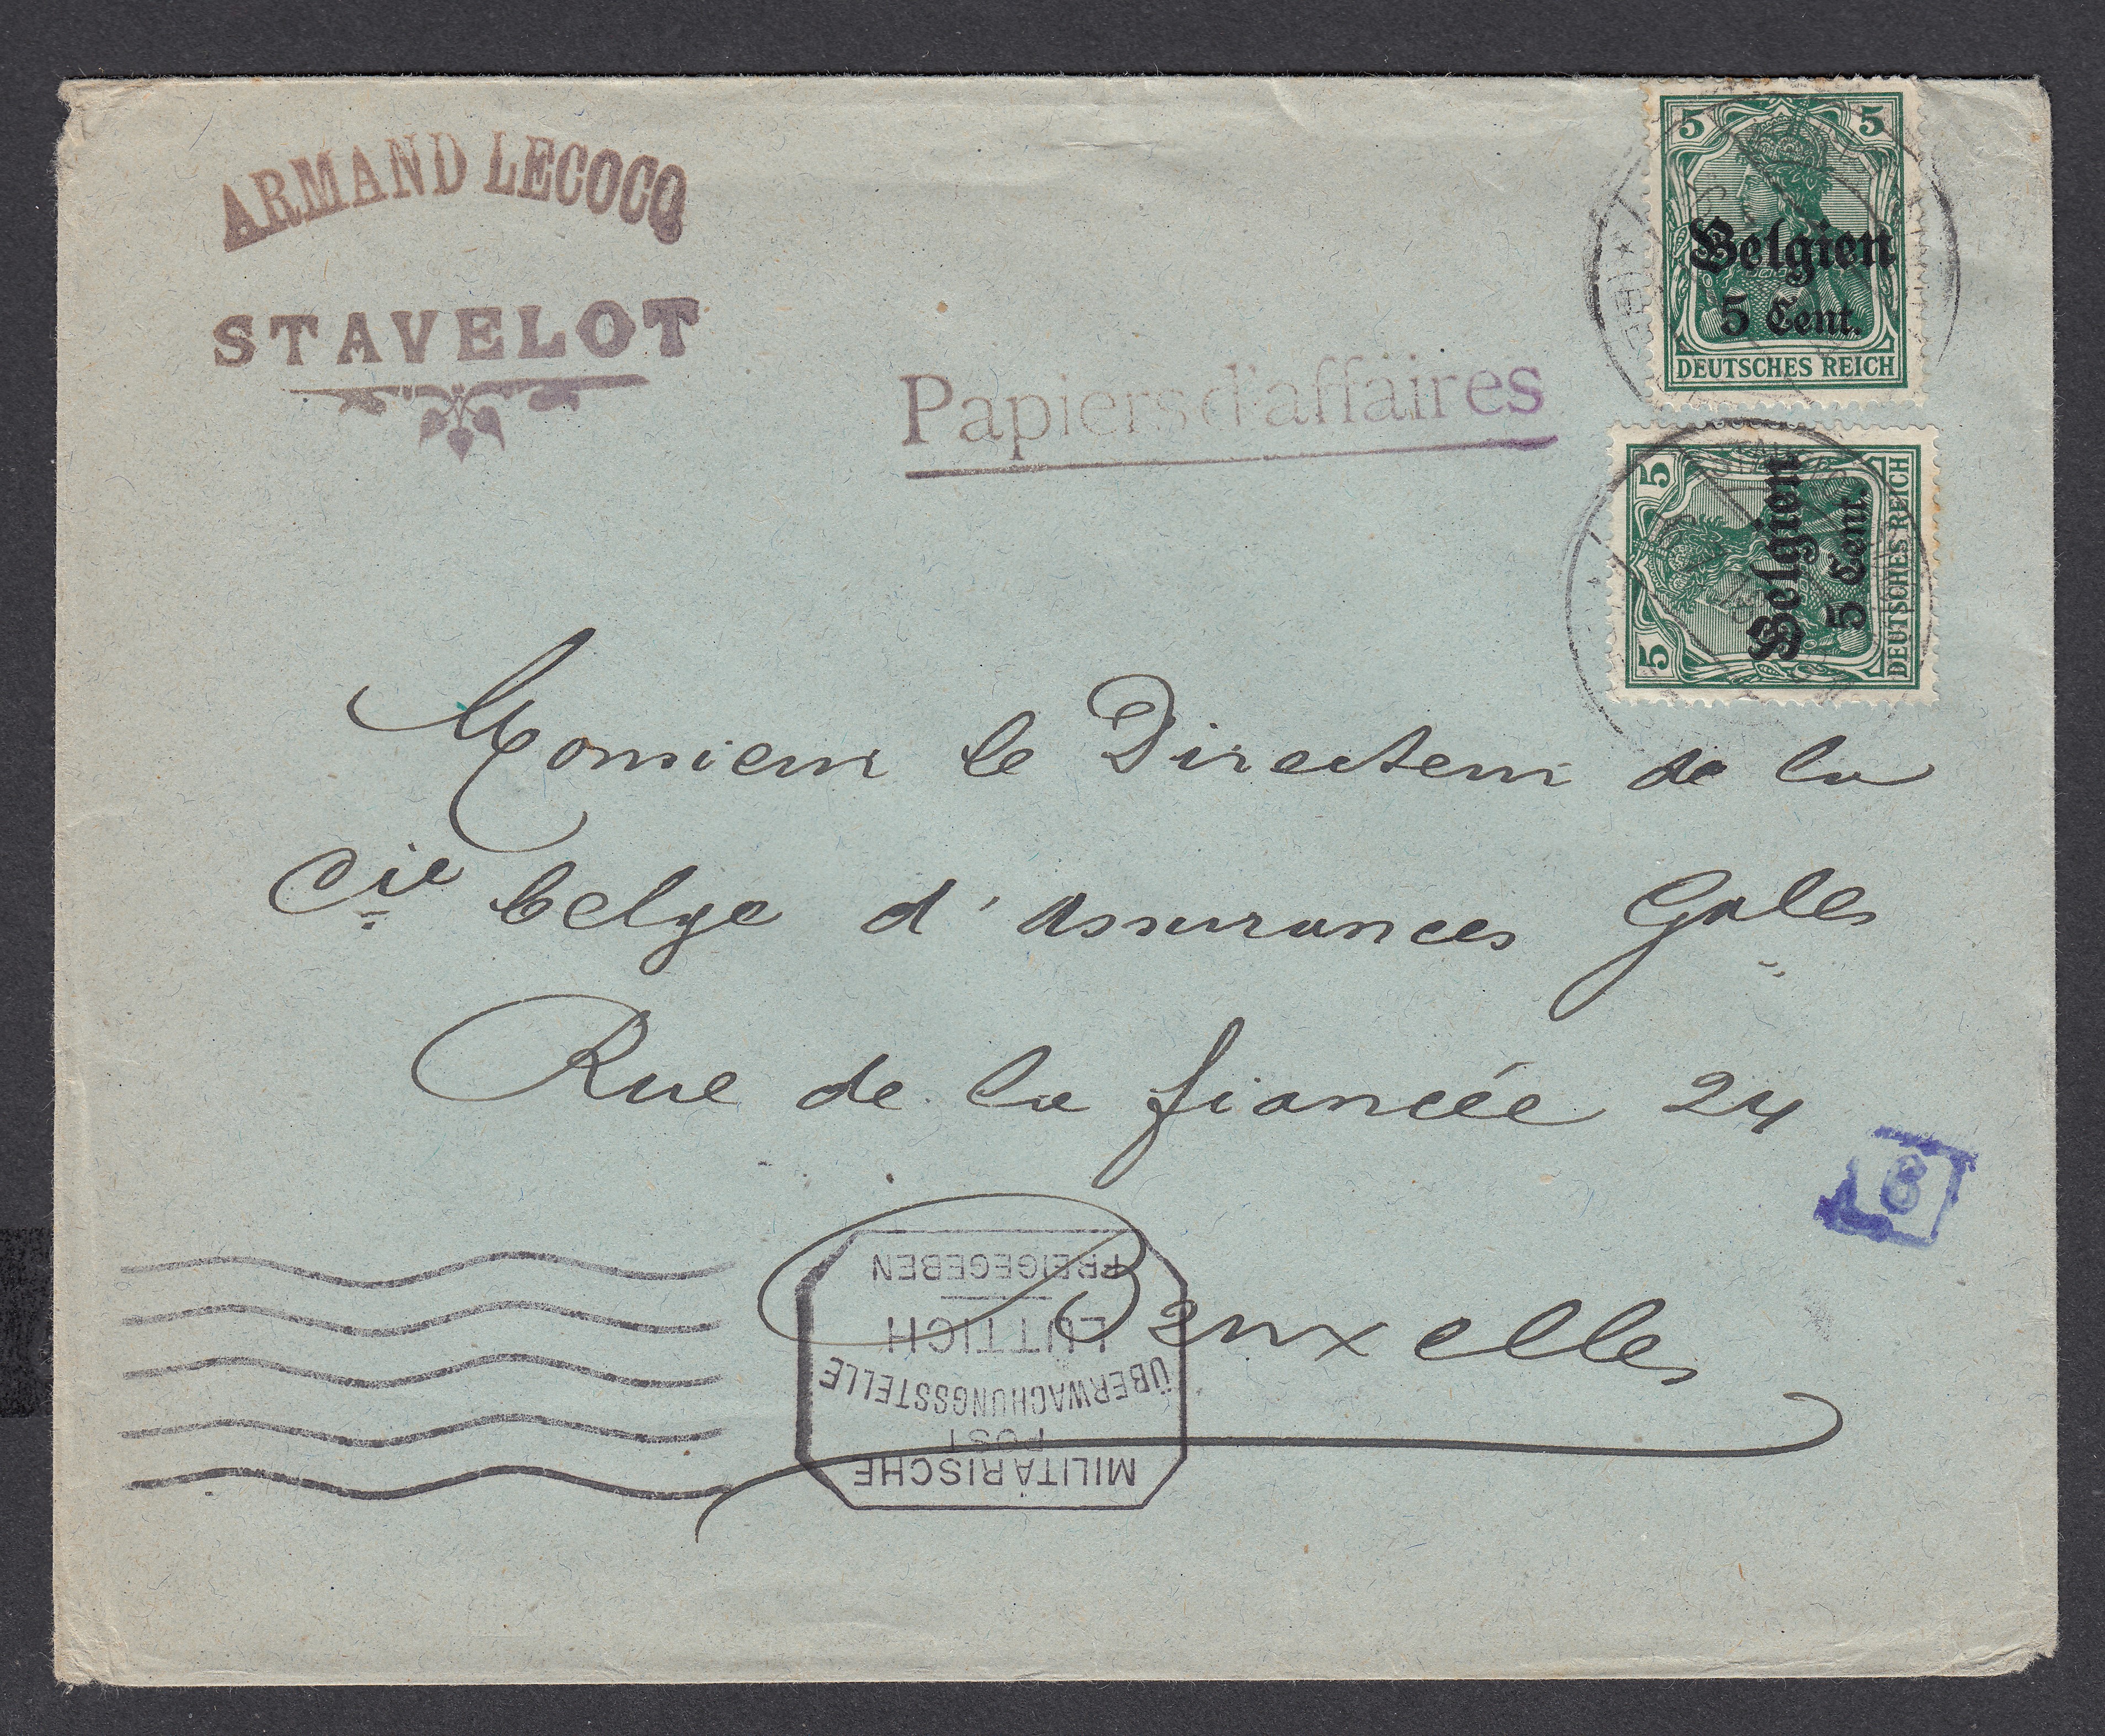 ARMAND LECOCQ
STAVELOT
Papiers d'affaires
5 5
Belgien
5 Cent.
DEUTSCHES REICH
5 5
Belgien
5 Cent.
DEUTSCHES REICH
Monsieur le Directeur de la
Cie belge d'assurances Gales
Rue de la fiancée 24
Bruxelles
8
MILITÄRISCHE
POST
ÜBERWACHUNGSSTELLE
LÜTTICH
FREIGEGEBEN